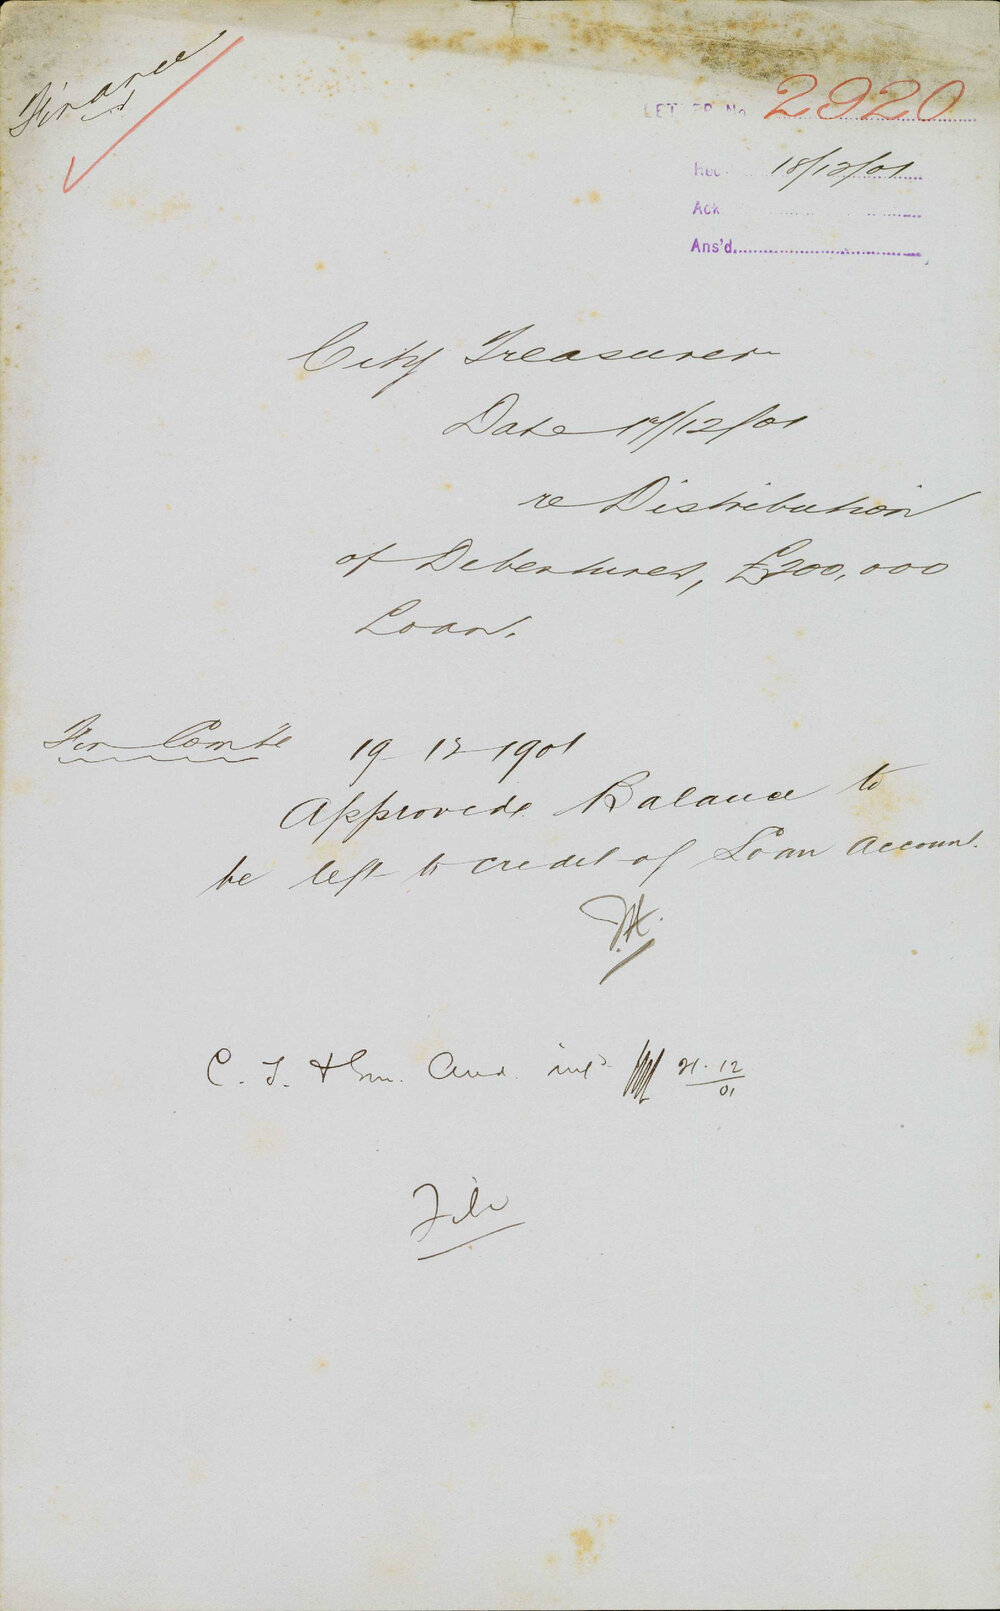 Finance
LETTER No 2920
Rec 18/12/01
Ack
Ans'd
City Treasurer
Date 17/12/01
re Distribution
of Debentures, £200,000
Loan.
Fin Comte 19 12 1901
Approved. Balance to
be left to credit of Loan Account.
C. T. & Aud. infd 21.12
01
File